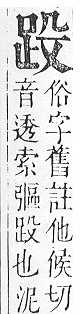 䟝
俗字舊註他候切
音透索彄䟝也泥